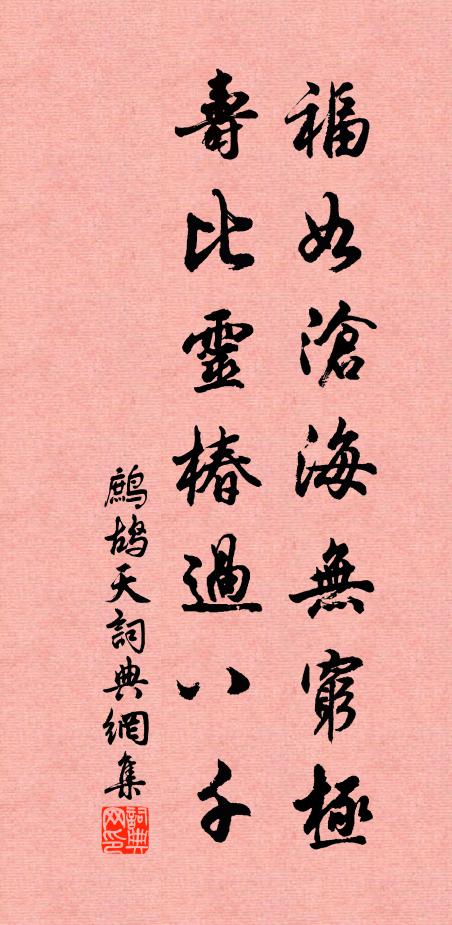 福如滄海無窮極
壽比靈椿過八千
鷓鴣天詞典網集
詞典网印